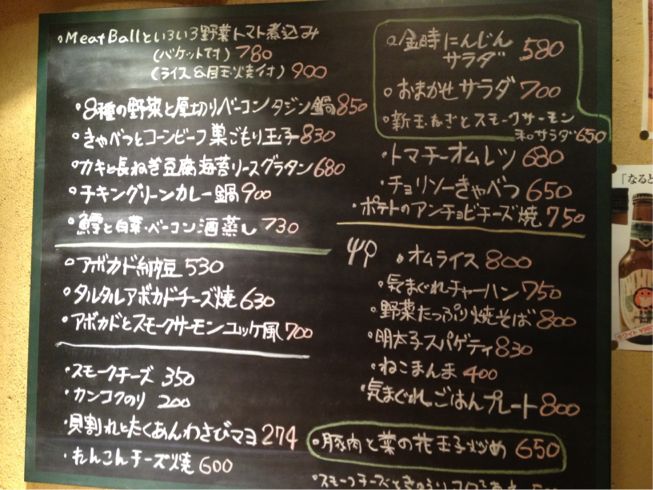 MeatBallといろいろ野菜トマト煮込み
(バケット付) 780
(ライス&目玉焼付) 900
8種の野菜と厚切りベーコンタジン鍋 850
きゃべつとコーンビーフ巣ごもり玉子 830
カキと長ねぎ豆腐海苔リースグラタン 680
チキングリーンカレー鍋 900
鱈と白菜・ベーコン酒蒸し 730
アボカド納豆 530
タルタルアボカドチーズ焼 630
アボカドとスモークサーモンユッケ風 700
スモークチーズ 350
カンコクのり 200
貝割れとたくあんわさびマヨ 274
れんこんチーズ焼 600
金時にんじん
サラダ 580
おまかせサラダ 700
新玉ねぎとスモークサーモン
和サラダ 650
トマチーオムレツ 680
チョリソーきゃべつ 650
ポテトのアンチョビチーズ焼 750
オムライス 800
気まぐれチャーハン 750
野菜たっぷり焼そば 800
明太子スパゲティ 830
ねこまんま 400
気まぐれごはんプレート 800
豚肉と菜の花玉子炒め 650
スモークチーズときのう
「なると
ホワイト